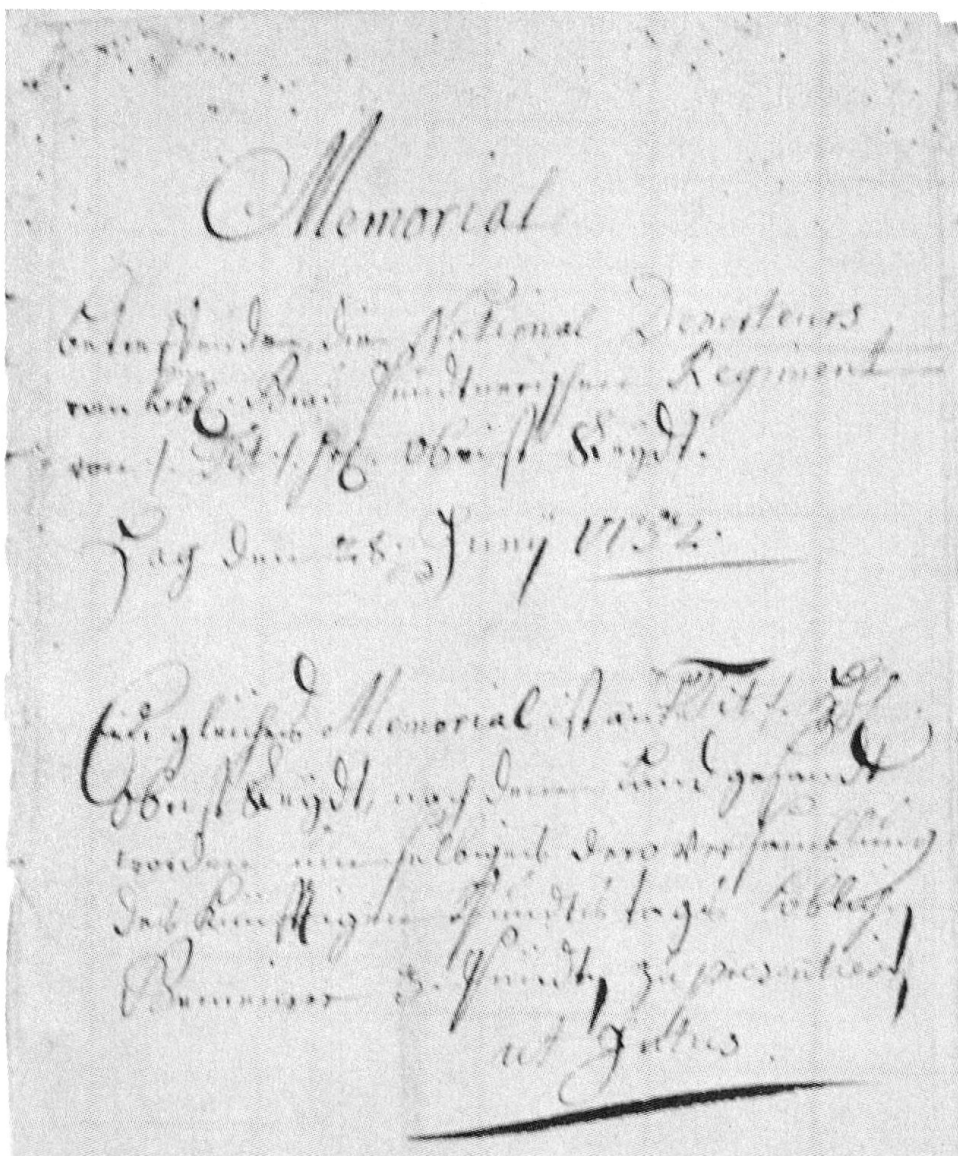 Memorial
betreffende die National Deserteurs
von Pündtnerischen Regiment
von Obrist Reydt.
Hag den 28. Juny 1732.
Ein gleiches Memorial ist an Tit.
Obrist Reydt, nach dem Land gesandt
worden um selbiges dero versamlung
des künfftigen Pundtstags Loblich.
Gemeiner 3. Pündten zu presentiren,
ut